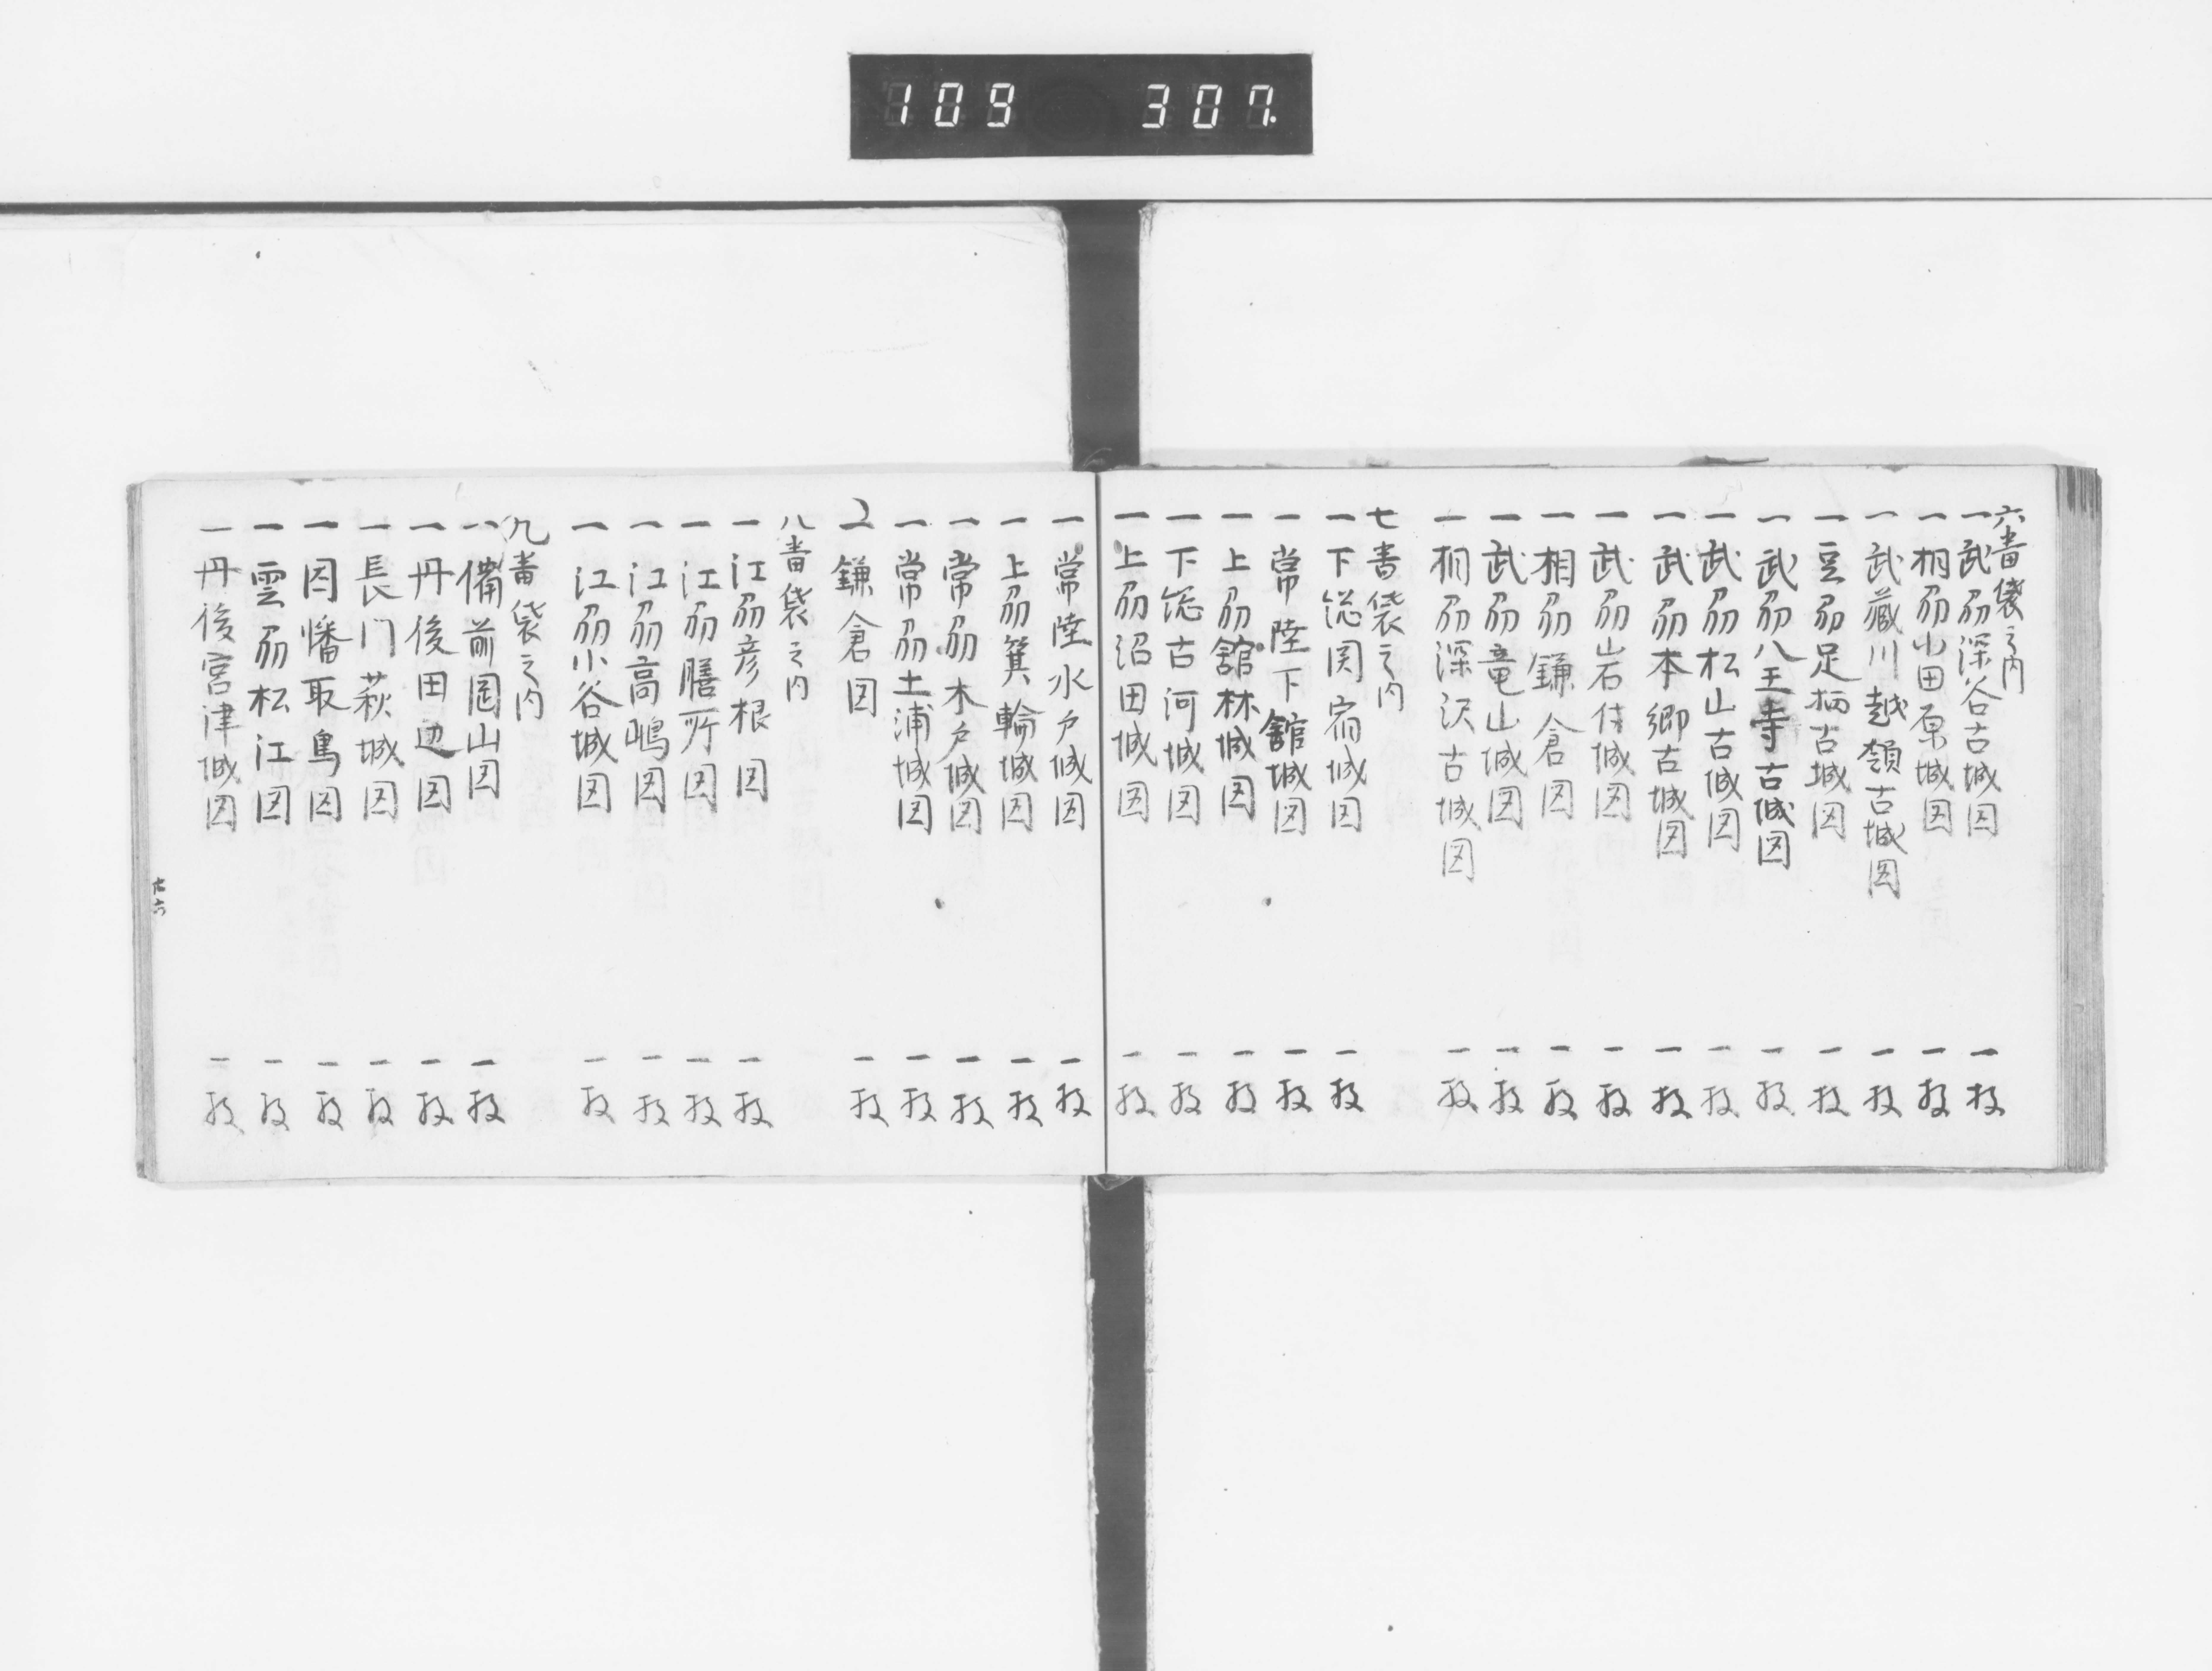 109 307.
六番袋之内
一武刕深谷古城図 一枚
一相刕小田原城図 一枚
一武蔵川越領古城図 一枚
一豆刕足柄古城図 一枚
一武刕八王寺古城図 一枚
一武刕松山古城図 一枚
一武刕本郷古城図 一枚
一武刕岩付城図 一枚
一相刕鎌倉図 一枚
一武刕竜山城図 一枚
一相刕深沢古城図 一枚
七番袋之内
一下総関宿城図 一枚
一常陸下舘城図 一枚
一上刕舘林城図 一枚
一下総古河城図 一枚
一上刕沼田城図 一枚
一常陸水戸城図 一枚
一上刕箕輪城図 一枚
一常刕木戸城図 一枚
一常刕土浦城図 一枚
一鎌倉図 一枚
八番袋之内
一江刕彦根図 一枚
一江刕膳所図 一枚
一江刕高嶋図 一枚
一江刕小谷城図 一枚
九番袋之内
一備前岡山図 一枚
一丹後田辺図 一枚
一長門萩城図 一枚
一因幡取鳥図 一枚
一雲刕松江図 一枚
一丹後宮津城図 一枚